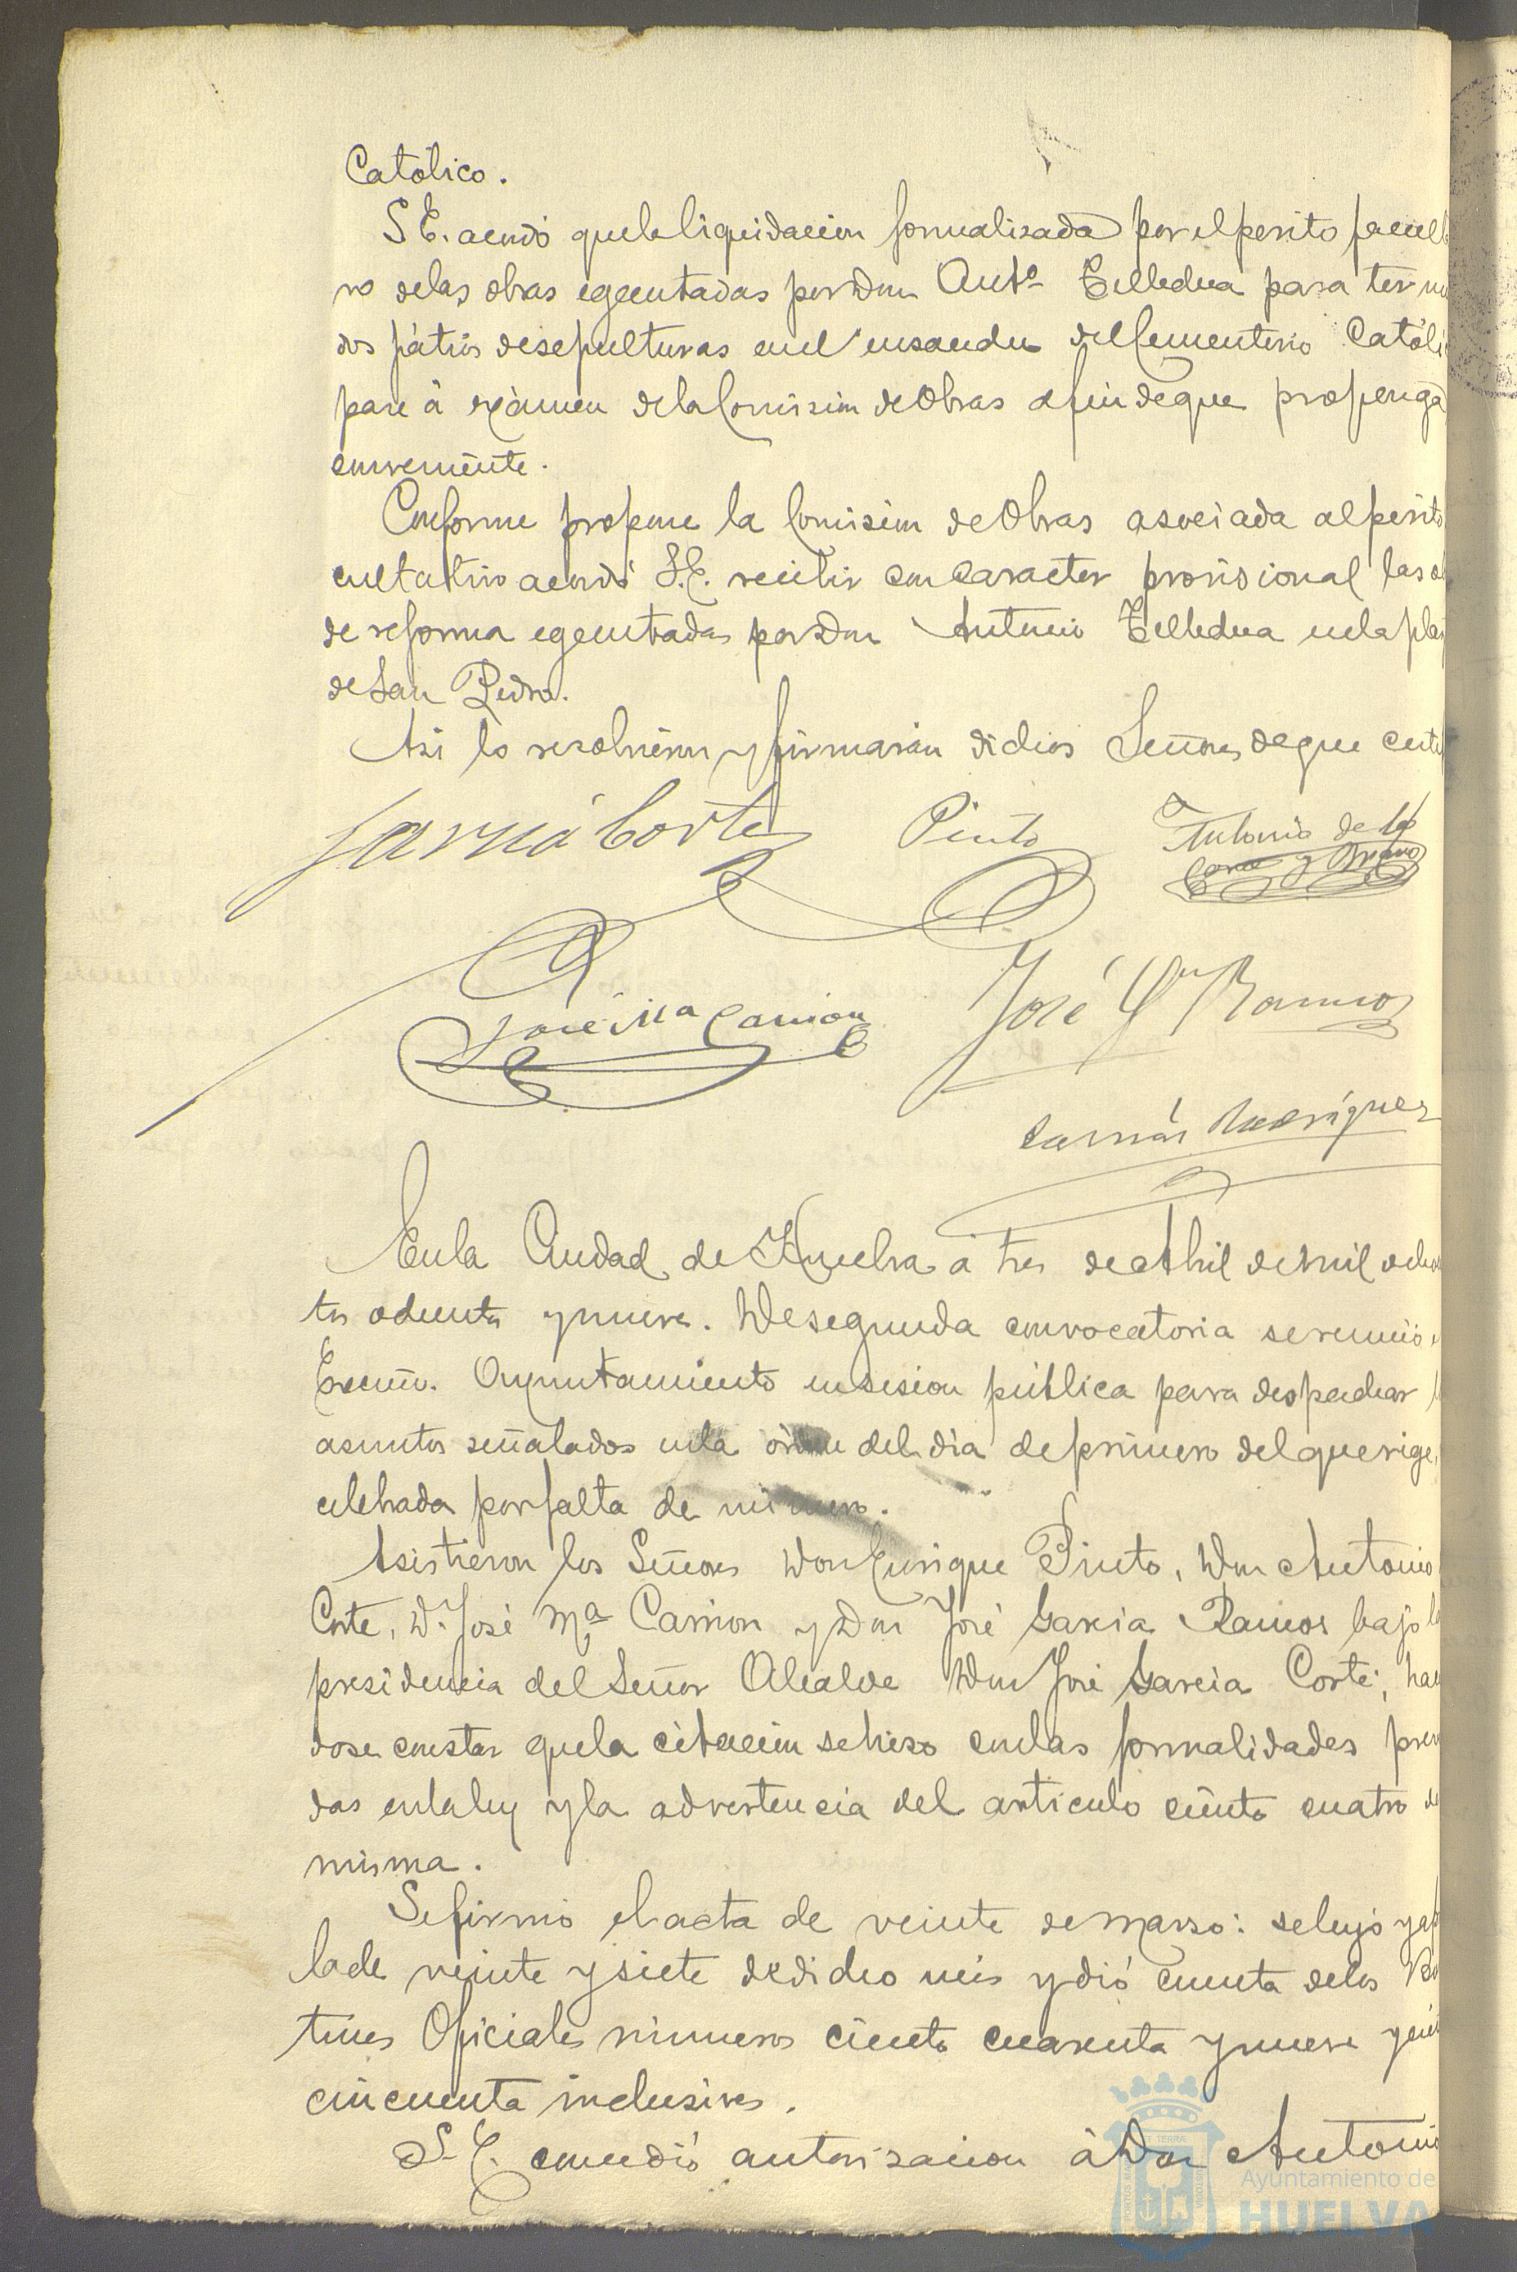 Católico.
S. E. acordó que la liquidacion formalizada por el perito facult
vo de las obras egecutadas por Don Antº Telledua para ter
dos pátios de sepulturas en el ensanche del Cementerio Católi
pase á exámen de la Comision de Obras á fin de que proponga
conveniente.
Conforme propone la Comision de Obras asociada al perito
cultativo acordó S. E. recibir con caracter provisional las o
de reforma egecutadas por Don Antonio Telledua en la pla
de San Pedro.
Asi lo resolvieron y firmarán dichos Señores de que certi
García Corte
Pinto
Antonio de la
Corte y Bravo
José Mª Carrion
José Gª Ramos
Rodríguez
En la Ciudad de Huelva á tres de Abril de mil ocho
tos ochenta y nueve. De segunda convocatoria se reunió e
Excmo. Ayuntamiento en sesion pública para despachar l
asuntos señalados en la órden del dia de primero del que rige,
celebrada por falta de número.
Asistieron los Señores Don Enrique Pinto, Don Antonio
Corte, D. José Mª Carrion y Don José Garcia Ramos bajo la
presidencia del Señor Alcalde Don José Garcia Corte; hac
dose constar que la citacion se hizo con las formalidades prev
das en la ley y la advertencia del articulo ciento cuatro de
misma.
Se firmó el acta de veinte de marzo: se leyó y ap
la de veinte y siete de dicho mes y dió cuenta de los Bo
tines Oficiales números ciento cuarenta y nueve y cien
cincuenta inclusives.
S. E. concedió autorizacion á Don Antonio
Ayuntamiento de
HUELVA